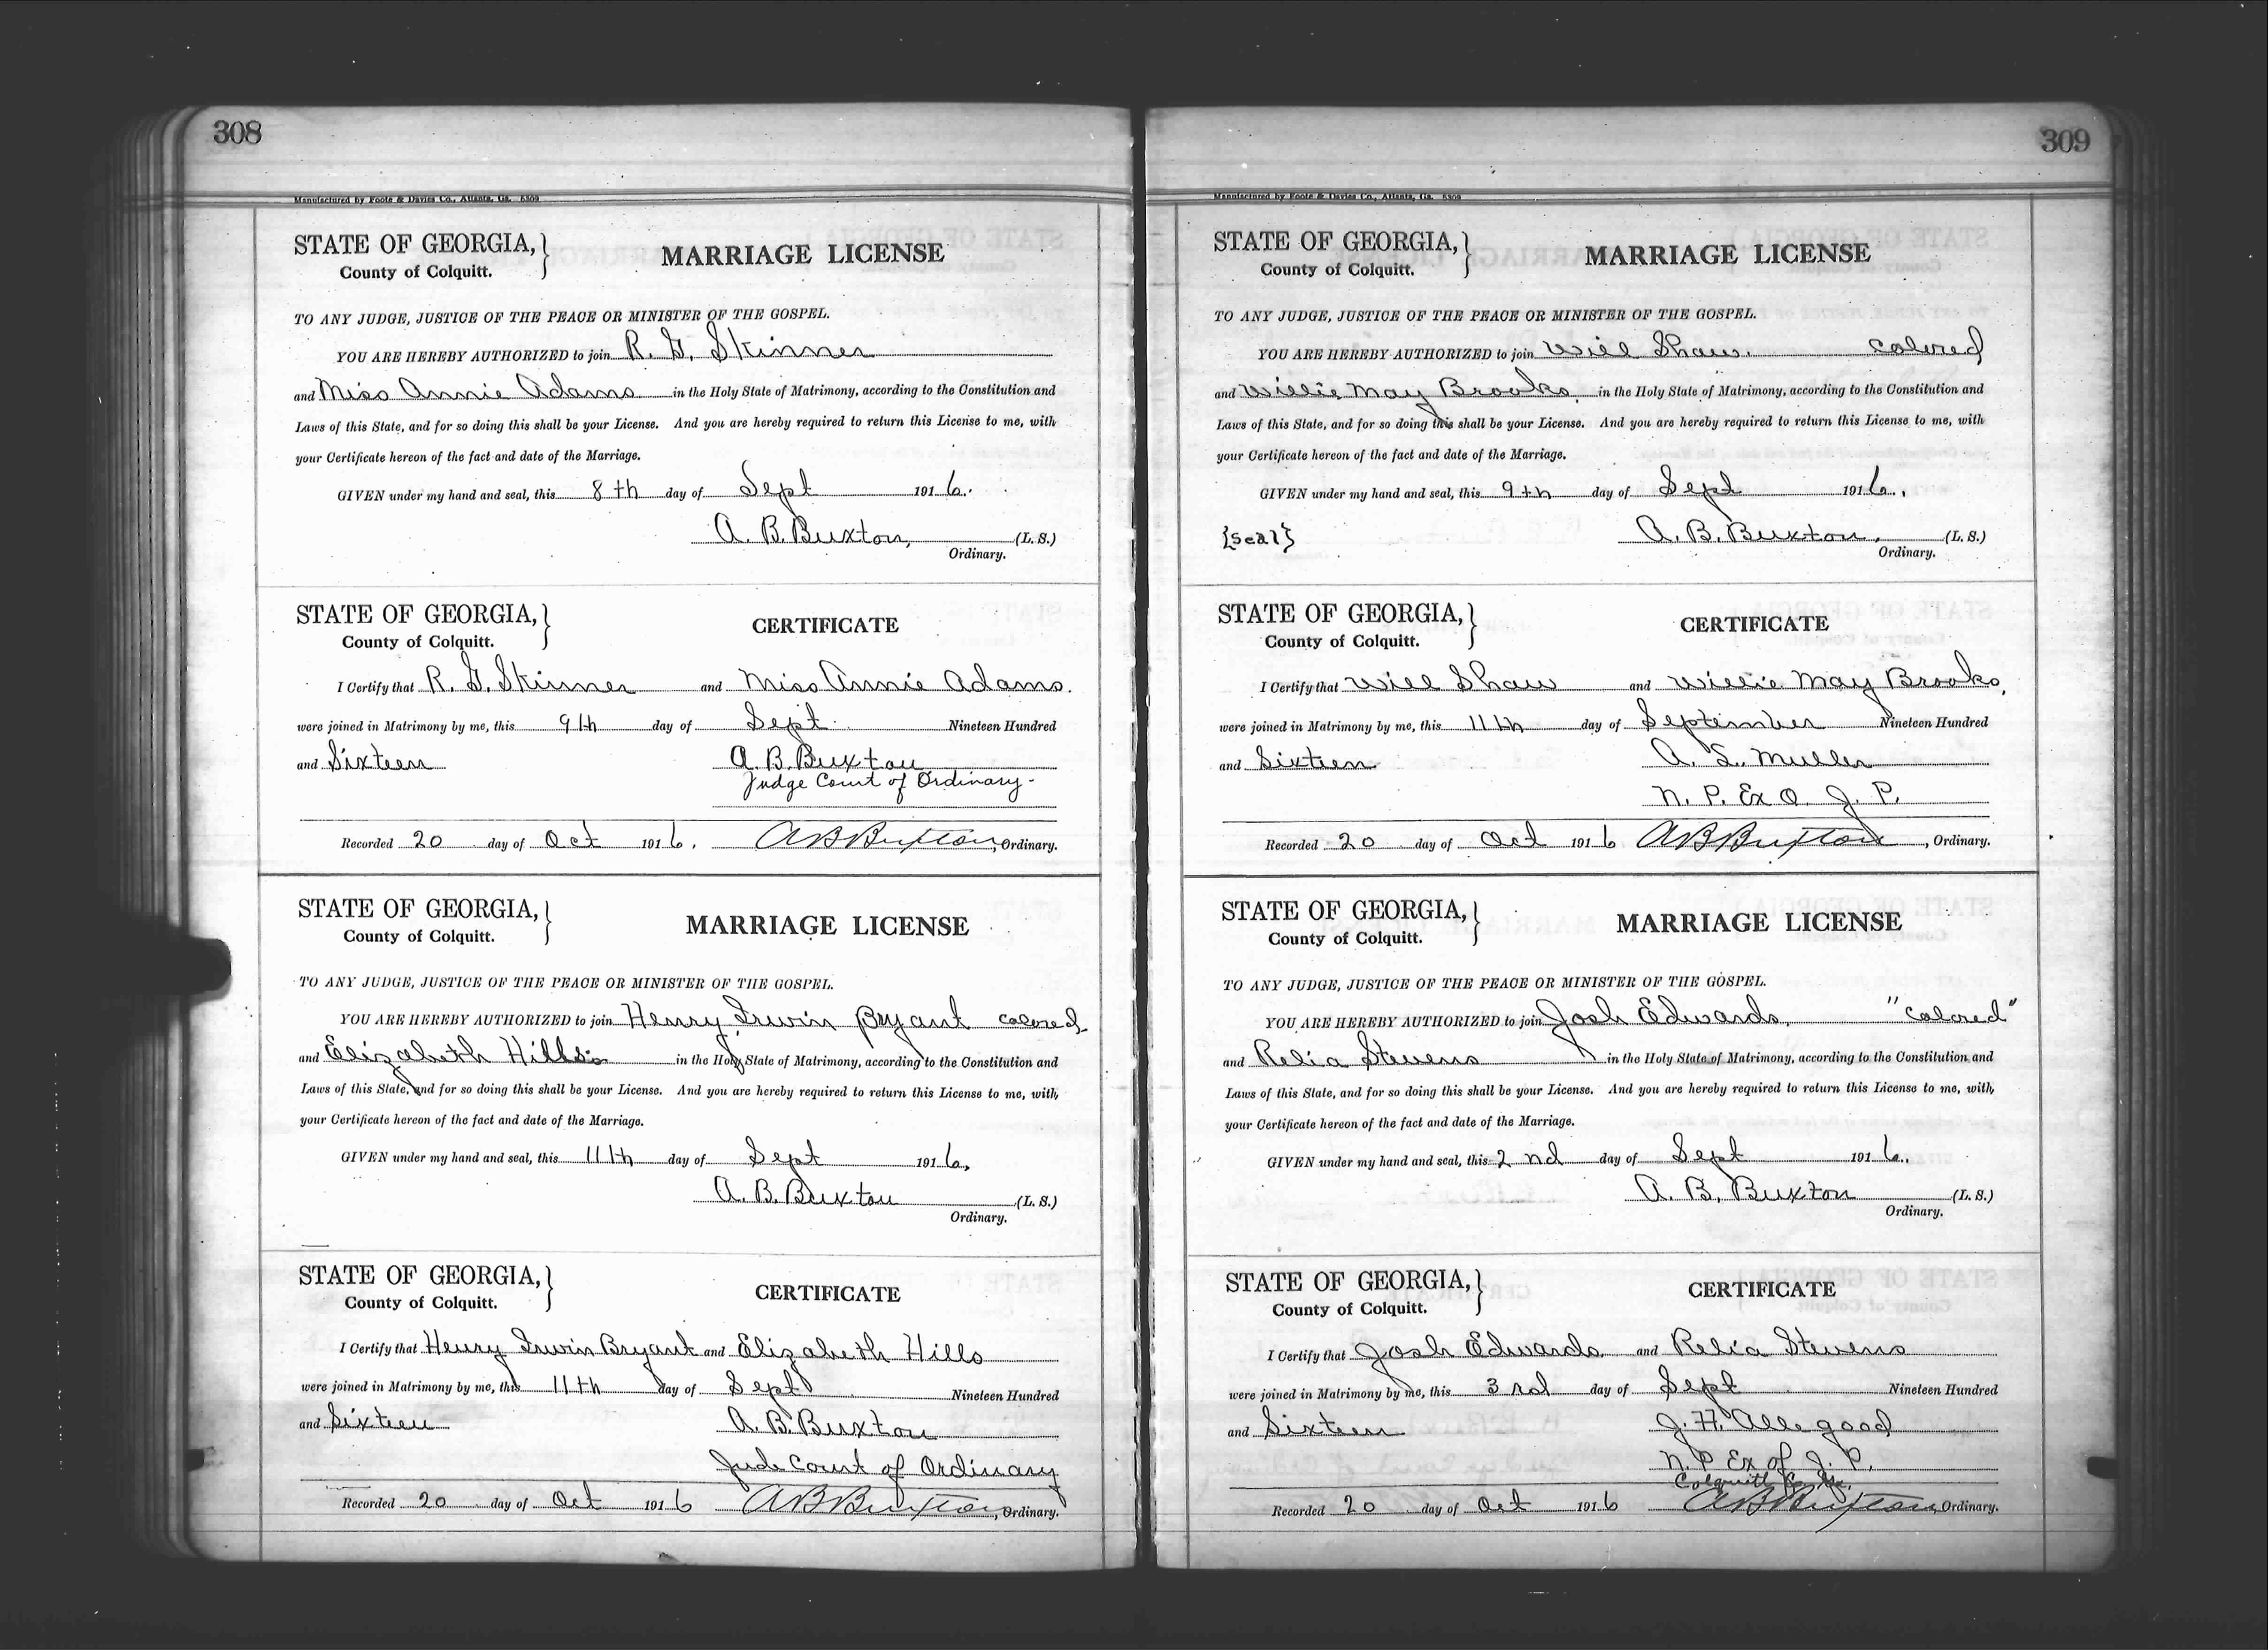 308
Manufactured by Foote & Davies Co., Atlanta, Ga. 5309
STATE OF GEORGIA,
County of Colquitt.
MARRIAGE LICENSE
TO ANY JUDGE, JUSTICE OF THE PEACE OR MINISTER OF THE GOSPEL.
YOU ARE HEREBY AUTHORIZED to join R. G. Skinner
and Miss Annie Adams in the Holy State of Matrimony, according to the Constitution and
Laws of this State, and for so doing this shall be your License. And you are hereby required to return this License to me, with
your Certificate hereon of the fact and date of the Marriage.
GIVEN under my hand and seal, this 8th day of Sept 1916.
A. B. Buxton, (L. S.)
Ordinary.
STATE OF GEORGIA,
County of Colquitt.
CERTIFICATE
I Certify that R. G. Skinner and Miss Annie Adams.
were joined in Matrimony by me, this 9th day of Sept. Nineteen Hundred
and Sixteen A. B. Buxton
Judge Court of Ordinary-
Recorded 20 day of Oct 1916. A B Buxton, Ordinary.
STATE OF GEORGIA,
County of Colquitt.
MARRIAGE LICENSE
TO ANY JUDGE, JUSTICE OF THE PEACE OR MINISTER OF THE GOSPEL.
YOU ARE HEREBY AUTHORIZED to join Henry Irwin Bryant colored
and Elizabeth Hills in the Holy State of Matrimony, according to the Constitution and
Laws of this State, and for so doing this shall be your License. And you are hereby required to return this License to me, with
your Certificate hereon of the fact and date of the Marriage.
GIVEN under my hand and seal, this 11th day of Sept 1916.
A. B. Buxton (L. S.)
Ordinary.
STATE OF GEORGIA,
County of Colquitt.
CERTIFICATE
I Certify that Henry Irwin Bryant and Elizabeth Hills
were joined in Matrimony by me, this 11th day of Sept Nineteen Hundred
and Sixteen A. B. Buxton
Jude Court of Ordinary
Recorded 20 day of Oct 1916 A B Buxton, Ordinary.
309
Manufactured by Foote & Davies Co., Atlanta, Ga. 5309
STATE OF GEORGIA,
County of Colquitt.
MARRIAGE LICENSE
TO ANY JUDGE, JUSTICE OF THE PEACE OR MINISTER OF THE GOSPEL.
YOU ARE HEREBY AUTHORIZED to join Will Shaw. colored
and Willie May Brooks, in the Holy State of Matrimony, according to the Constitution and
Laws of this State, and for so doing this shall be your License. And you are hereby required to return this License to me, with
your Certificate hereon of the fact and date of the Marriage.
GIVEN under my hand and seal, this 9th day of Sept 1916.
{seal} A. B. Buxton. (L. S.)
Ordinary.
STATE OF GEORGIA,
County of Colquitt.
CERTIFICATE
I Certify that Will Shaw and Willie May Brooks,
were joined in Matrimony by me, this 11th day of September Nineteen Hundred
and Sixteen A. L. Muller
N. P. Ex O. J. P.
Recorded 20 day of Oct 1916 A B Buxton, Ordinary.
STATE OF GEORGIA,
County of Colquitt.
MARRIAGE LICENSE
TO ANY JUDGE, JUSTICE OF THE PEACE OR MINISTER OF THE GOSPEL.
YOU ARE HEREBY AUTHORIZED to join Josh Edwards, "colored"
and Relia Stevens in the Holy State of Matrimony, according to the Constitution and
Laws of this State, and for so doing this shall be your License. And you are hereby required to return this License to me, with
your Certificate hereon of the fact and date of the Marriage.
GIVEN under my hand and seal, this 2nd day of Sept 1916.
A. B. Buxton (L. S.)
Ordinary.
STATE OF GEORGIA,
County of Colquitt.
CERTIFICATE
I Certify that Josh Edwards and Relia Stevens
were joined in Matrimony by me, this 3rd day of Sept Nineteen Hundred
and Sixteen J. H. Allegood
N. P Ex of J. P.
Colquitt Co Ga.
Recorded 20 day of Oct 1916 A B Buxton, Ordinary.